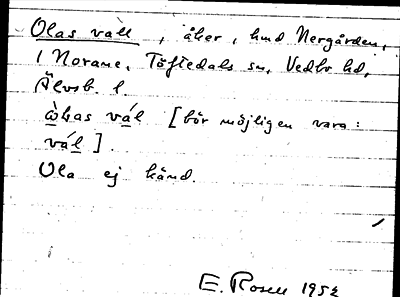 Olas vall, åker, hmd Nergården,
1 Norane, Töftedals sn, Vedbo hd,
Älvsb. l.
vál [bör möjligen vara:
vál].
Ola ej känd.
E. Rosell 1952